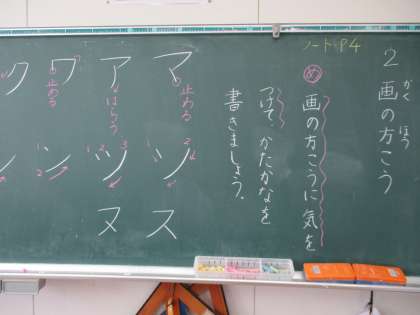 2 画の方こう
かく ほう
ノートP4
め 画の方こうに気を
つけて、かたかなを
書きましょう。
マ ソ ス
止める
2
ア ツ ヌ
はらう
1 2 3
ワ ン
止める
1
2
ク